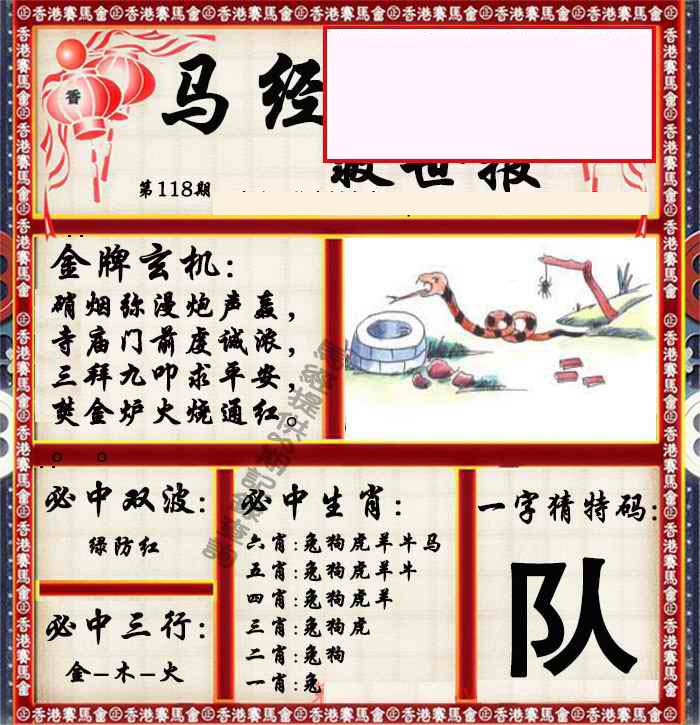 香港賽馬會
香
马经
救世报
第118期
金牌玄机:
硝烟弥漫炮声轰，
寺庙门前虔诚浓，
三拜九叩求平安，
焚金炉火烧通红。
必中双波:
绿防红
必中三行:
金-木-火
必中生肖:
六肖:兔狗虎羊牛马
五肖:兔狗虎羊牛
四肖:兔狗虎羊
三肖:兔狗虎
二肖:兔狗
一肖:兔
一字猜特码:
队